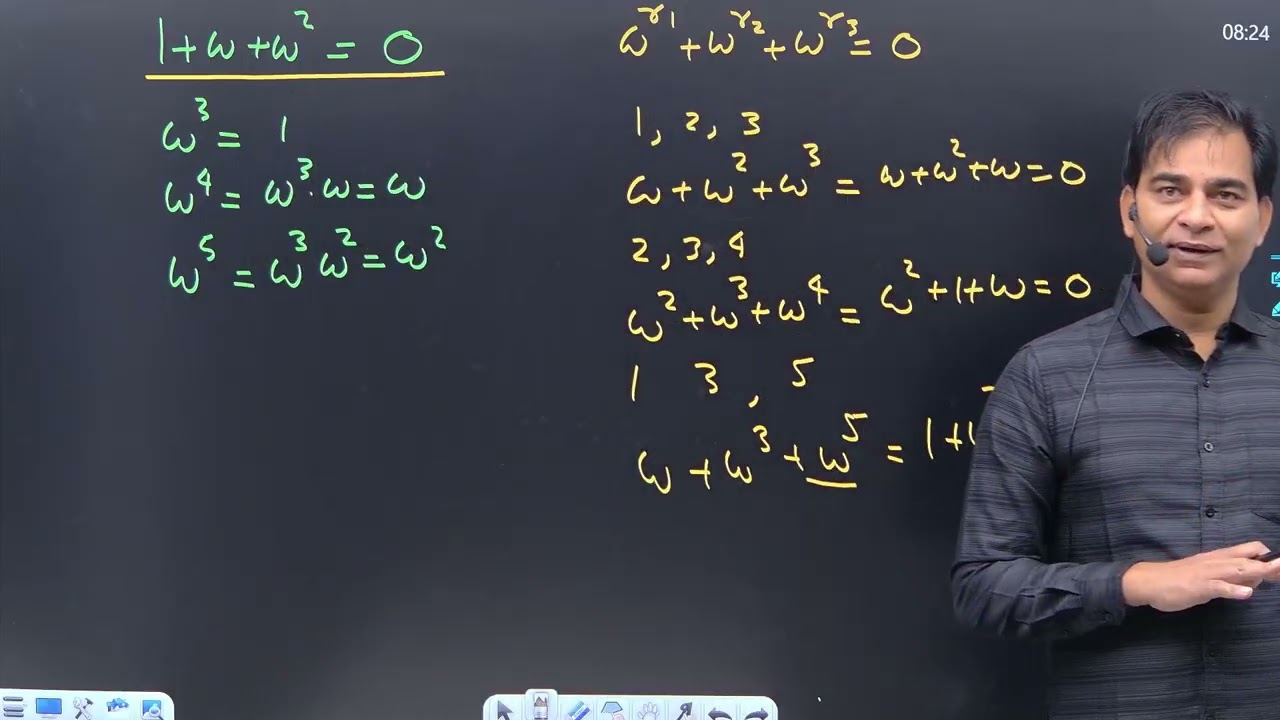 1+ω+ω² = 0
ω³ = 1
ω⁴ = ω³·ω = ω
ω⁵ = ω³ω² = ω²
ω^r₁ + ω^r₂ + ω^r₃ = 0
1, 2, 3
ω + ω² + ω³ = ω+ω²+ω = 0
2, 3, 4
ω² + ω³ + ω⁴ = ω²+1+ω = 0
1 3, 5
ω + ω³ + ω⁵ = 1+
08:24